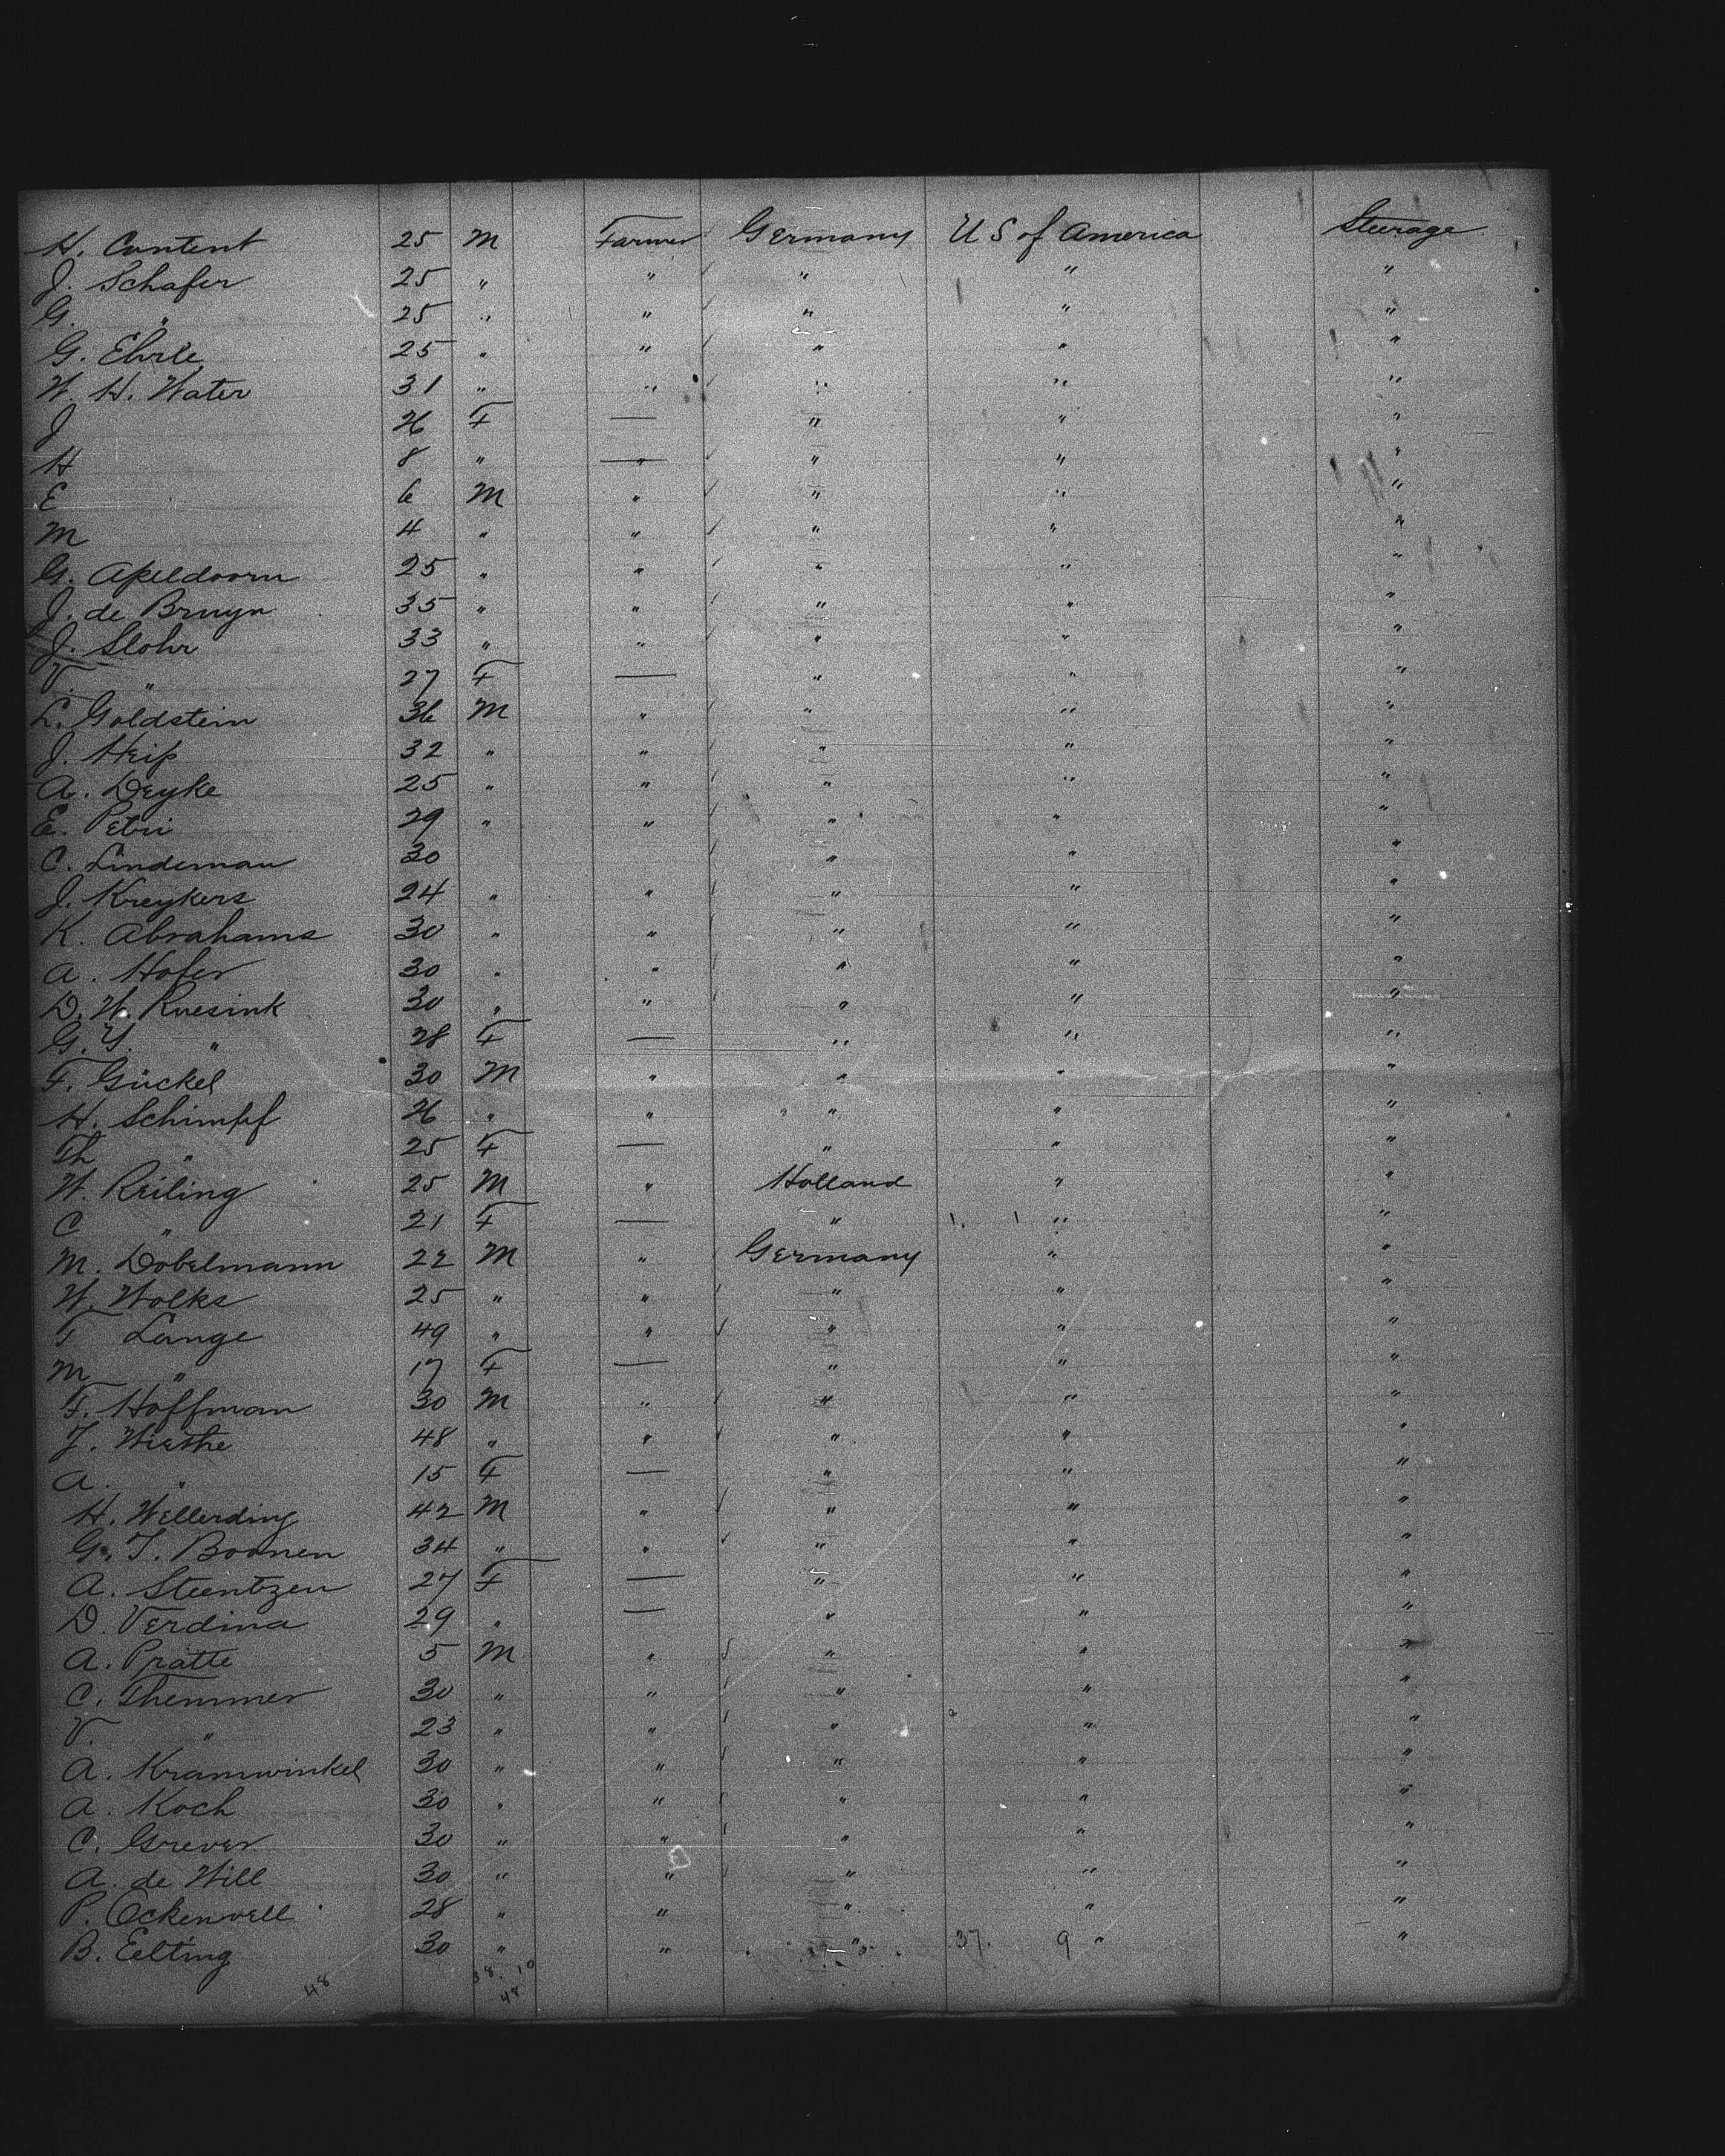 H. Content 25 M Farmer Germany U S of America Steerage
J. Schafer 25 " " " " "
G. " 25 " " " " "
G. Ehrle 25 " " " " "
W. H. Water 31 " " " " "
J 26 F — " " "
H 8 " — " " "
E 6 M " " " "
M 4 " " " " "
G. Apeldoorn 25 " " " " "
J. de Bruyn 35 " " " " "
J. Slohr 33 " " " " "
V. " 27 F — " " "
L. Goldstein 36 M " " " "
J. Heip 32 " " " " "
A. Deyke 25 " " " " "
E. Petri 29 " " " " "
C. Lindeman 30 " " "
J. Kreykers 24 " " " " "
K. Abrahams 30 " " " " "
A. Hofer 30 " " " " "
D. W. Ruesink 30 " " " " "
G. Y. " 28 F — " " "
F. Gückel 30 M " " " "
H. Schimpf 26 " " " " "
Th " 25 F — " " "
W. Reiling 25 M " Holland " "
C " 21 F — " " "
M. Dobelmann 22 M " Germany " "
W. Wolks 25 " " " " "
T Lange 49 " " " " "
M " 17 F — " " "
F. Hoffman 30 M " " " "
J. Wiesthe 48 " " " " "
A. " 15 F — " " "
H. Wellerding 42 M " " " "
G. J. Boonen 34 " " " " "
A. Steentzen 27 F — " " "
D. Verdina 29 " — " " "
A. Pratte 5 M " " " "
C. Themmer 30 " " " " "
V. " 23 " " " " "
A. Kramwinkel 30 " " " " "
A. Koch 30 " " " " "
C. Grever 30 " " " " "
A. de Will 30 " " " " "
P. Eckenwell 28 " " " " "
B. Eelting 30 " " " 37. 9 " "
48 38. 10
48